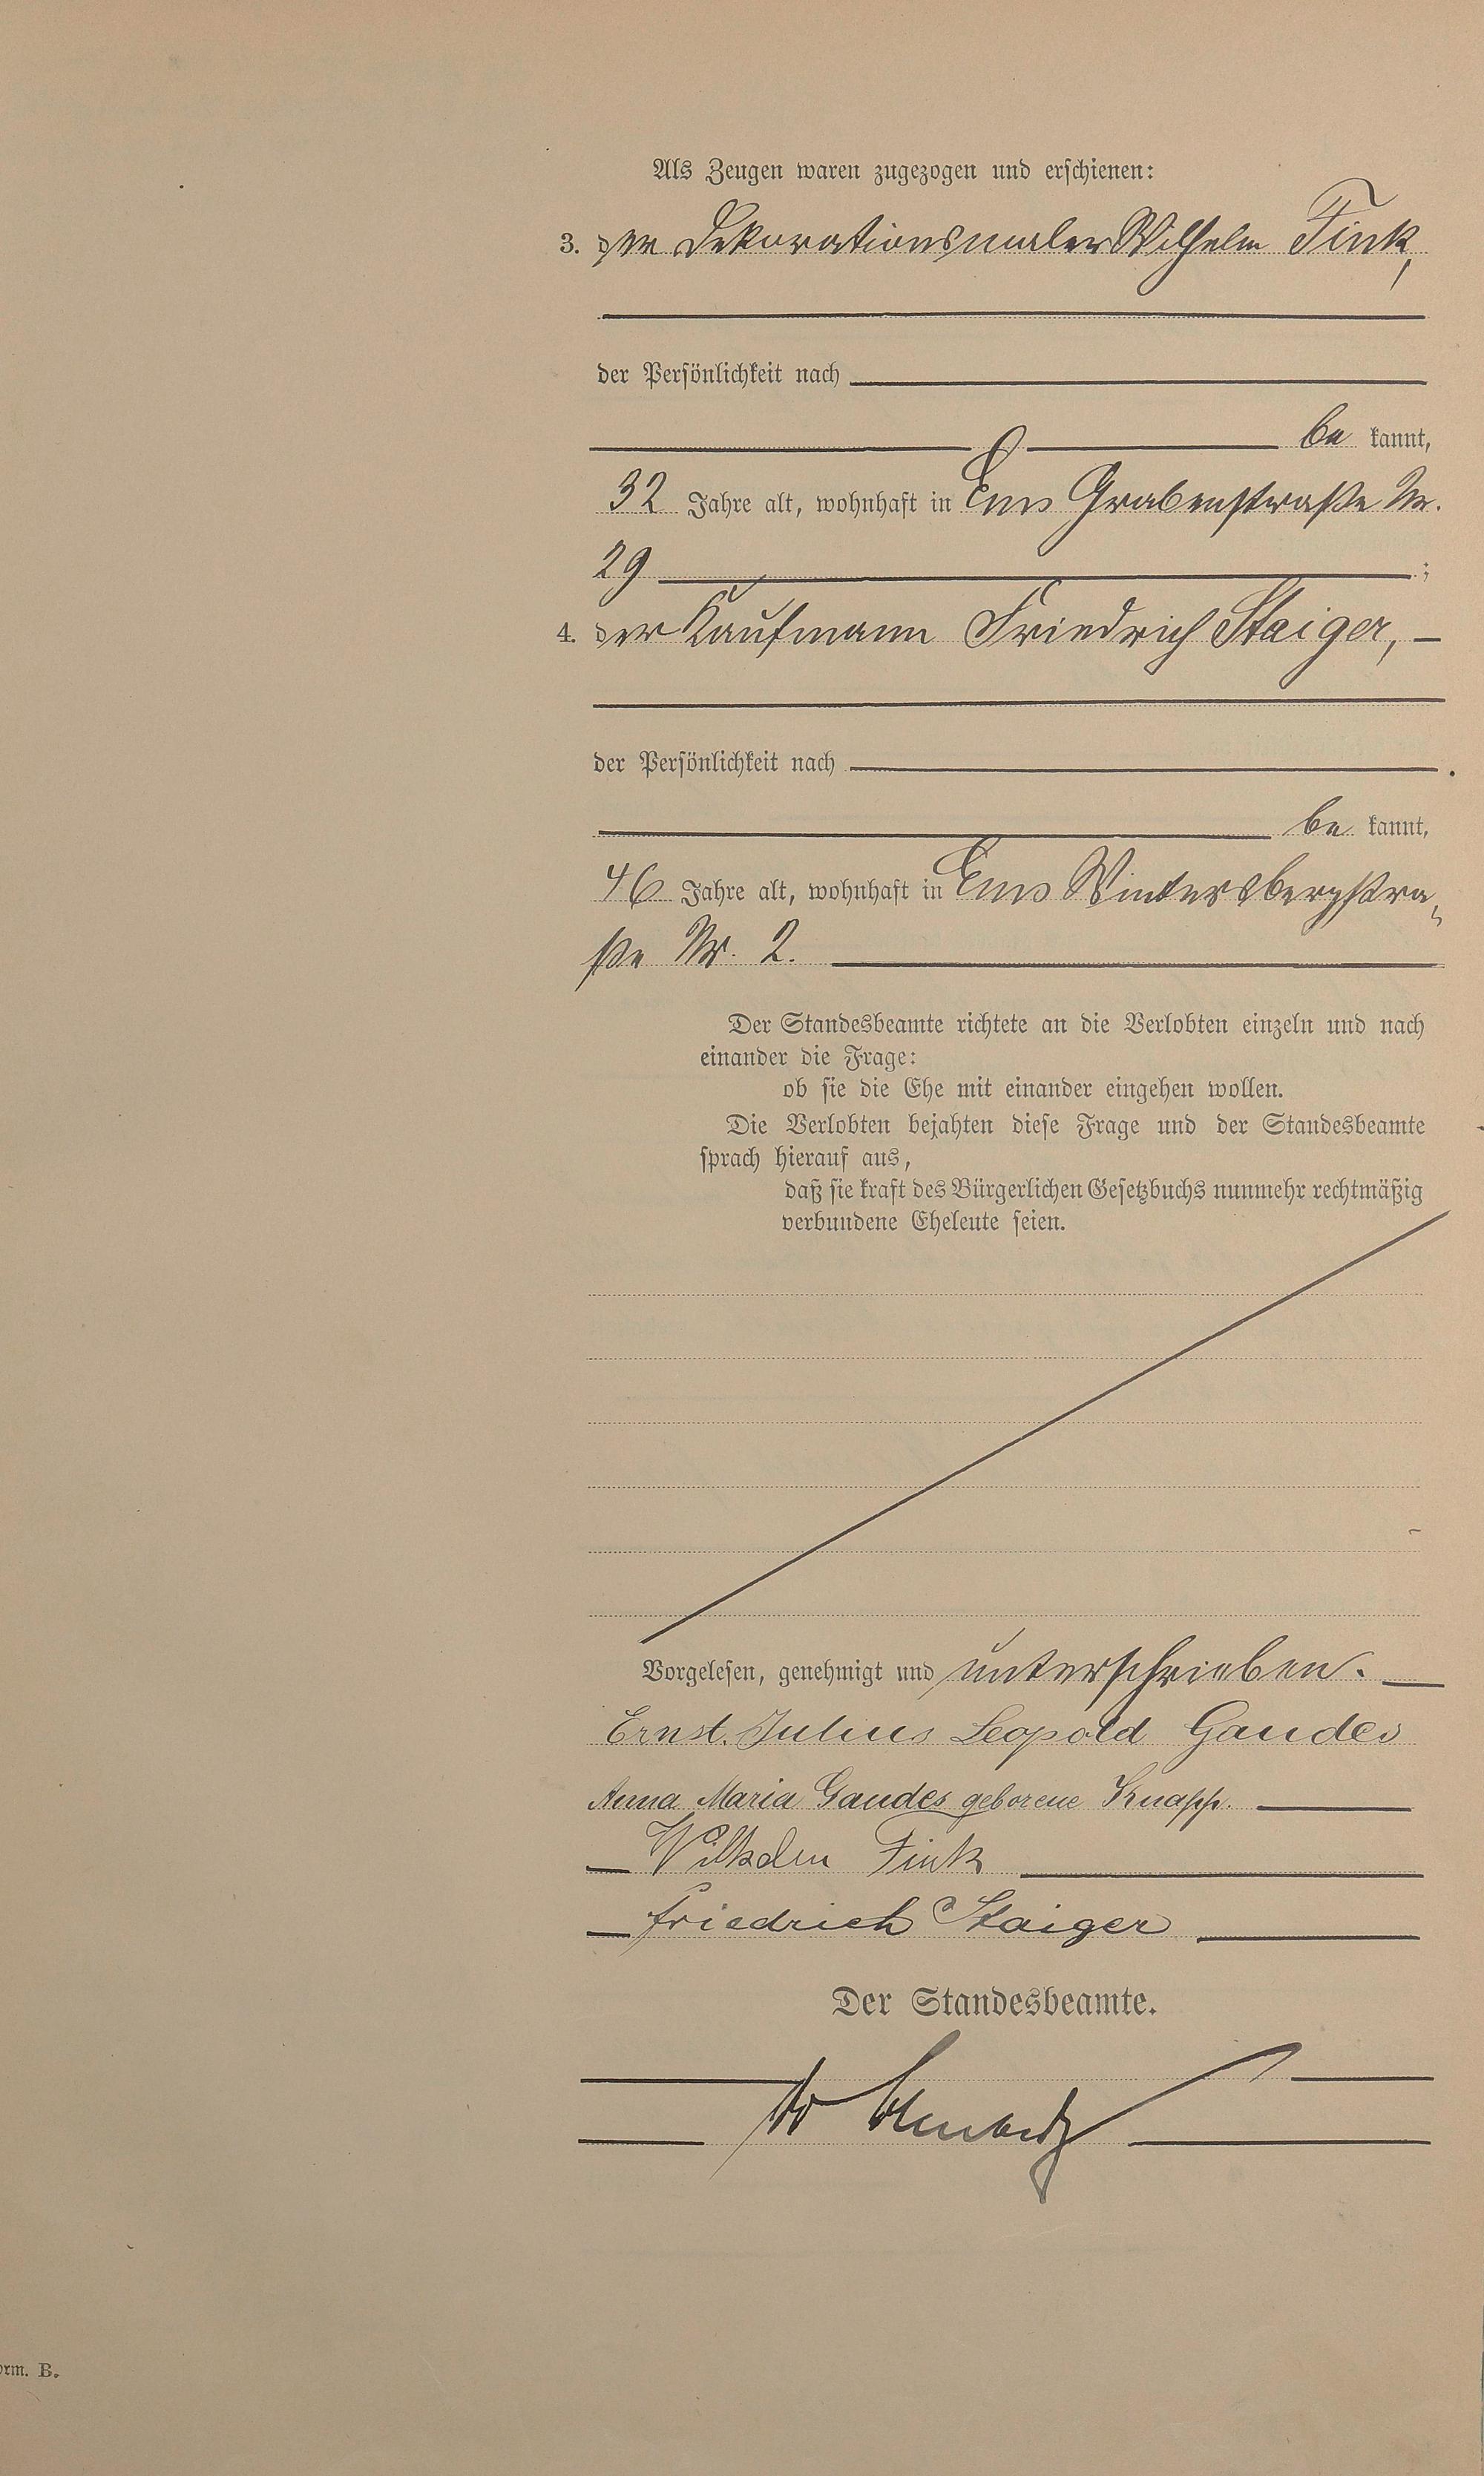 Als Zeugen waren zugezogen und erschienen:
3. der Dekorationsmaler Wilhelm Fink,
der Persönlichkeit nach
be kannt,
32 Jahre alt, wohnhaft in Ems Grabenstraße Nr.
29 ;
4. der Kaufmann Friedrich Staiger, —
der Persönlichkeit nach
be kannt,
46 Jahre alt, wohnhaft in Ems Wintersbergstra„
ße Nr. 2.
Der Standesbeamte richtete an die Verlobten einzeln und nach
einander die Frage:
ob sie die Ehe mit einander eingehen wollen.
Die Verlobten bejahten diese Frage und der Standesbeamte
sprach hierauf aus,
daß sie kraft des Bürgerlichen Gesetzbuchs nunmehr rechtmäßig
verbundene Eheleute seien.
Vorgelesen, genehmigt und unterschrieben.
Ernst Julius Leopold Gaudes
Anna Maria Gaudes geborene Knapp.
Wilhelm Fink
Friedrich Staiger
Der Standesbeamte.
orm. B.